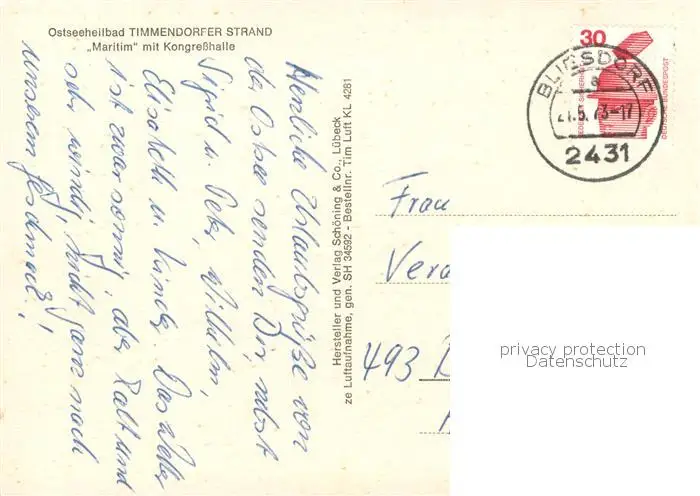 Ostseeheilbad TIMMENDORFER STRAND
„Maritim" mit Kongreßhalle
Herzliche Urlaubsgrüße von
der Ostsee senden Dir, nebst
Sigrid u. Peter, Wilhelm,
Elisabeth u. Kinder. Das Wetter
ist zwar sonnig, aber kalt und
sehr windig, nicht ganz nach
unserem Geschmack!
Hersteller und Verlag Schöning & Co., Lübeck
ze Luftaufnahme, gen. SH 34592 - Bestellnr. Tim Luft KL 4281
30
DEUTSCHE BUNDESPOST
BLIESDORF
a
21.5.73-17
2431
Frau
Vera
493
privacy protection
Datenschutz